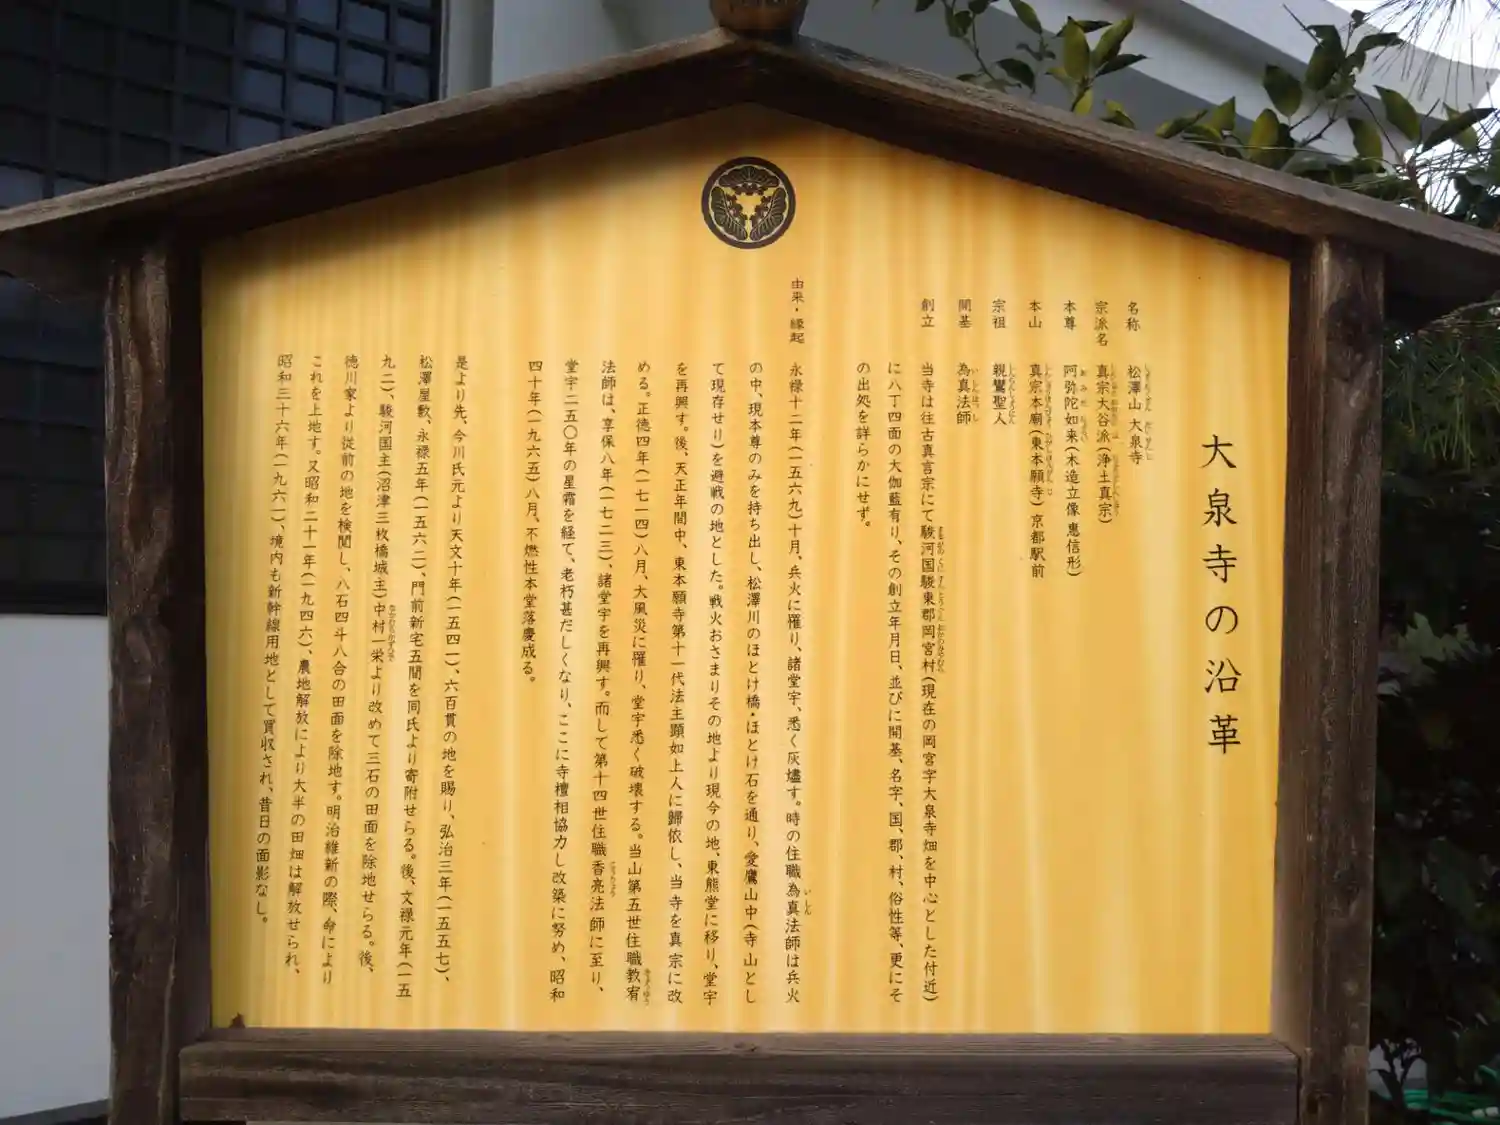 大泉寺の沿革
名称 松澤山 大泉寺
宗派名 真宗大谷派(浄土真宗)
本尊 阿弥陀如来(木造立像 恵信形)
本山 真宗本廟(東本願寺)京都駅前
宗祖 親鸞聖人
開基 為真法師
創立 当寺は往古真言宗にて駿河国駿東郡岡宮村(現在の岡宮字大泉寺畑を中心とした付近)
に八丁四面の大伽藍有り、その創立年月日、並びに開基、名字、国、郡、村、俗性等、更にそ
の出処を詳らかにせず。
由来・縁起 永禄十二年(一五六九)十月、兵火に罹り、諸堂宇、悉く灰燼す。時の住職為真法師は兵火
の中、現本尊のみを持ち出し、松澤川のほとけ橋・ほとけ石を通り、愛鷹山中(寺山とし
て現存せり)を避戦の地とした。戦火おさまりその地より現今の地、東熊堂に移り、堂宇
を再興す。後、天正年間中、東本願寺第十一代法主顕如上人に歸依し、当寺を真宗に改
める。正徳四年(一七一四)八月、大風災に罹り、堂宇悉く破壊する。当山第五世住職教宥
法師は、享保八年(一七二三)、諸堂宇を再興す。而して第十四世住職香亮法師に至り、
堂宇二五〇年の星霜を経て、老朽甚だしくなり、ここに寺檀相協力し改築に努め、昭和
四十年(一九六五)八月、不燃性本堂落慶成る。
是より先、今川氏元より天文十年(一五四一)、六百貫の地を賜り、弘治三年(一五五七)、
松澤屋敷、永禄五年(一五六二)、門前新宅五間を同氏より寄附せらる。後、文禄元年(一五
九二)、駿河国主(沼津三枚橋城主)中村一栄より改めて三石の田面を除地せらる。後、
徳川家より従前の地を検閲し、八石四斗八合の田面を除地す。明治維新の際、命により
これを上地す。又昭和二十一年(一九四六)、農地解放により大半の田畑は解放せられ、
昭和三十六年(一九六一)、境内も新幹線用地として買収され、昔日の面影なし。